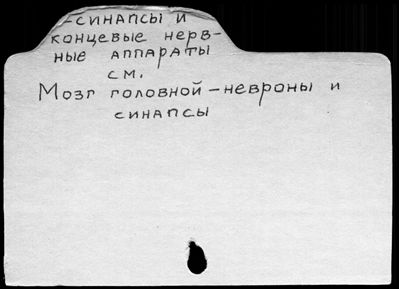 –синапсы и
концевые нерв–
ные аппараты
см.
Мозг головной – невроны и
синапсы